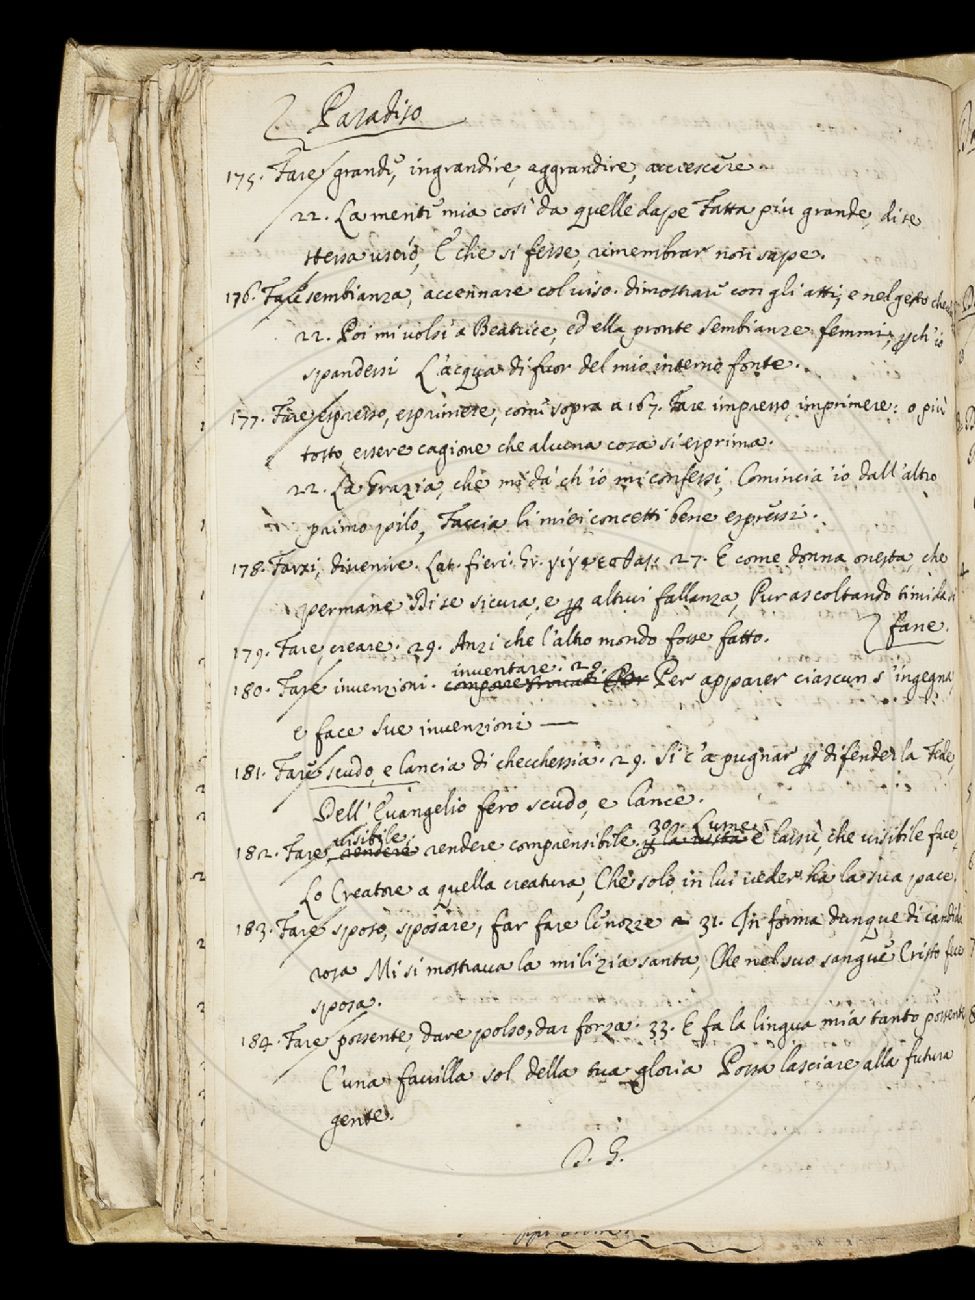 Paradiso
175. Fare grande, ingrandire, aggrandire, accrescere.
22. La mente mia così da quelle dape Fatta piu grande, di se
stessa uscio, E che si fesse, rimembrar non sape.
176. Fare sembianza, accennare col viso. dimostrare con gli atti, e nel gesto che
22. Poi mi volsi a Beatrice, ed ella pronte Sembianze femmi, ꝑch'io
spandessi L'acqua di fuor del mio interno fonte.
177. Fare espresso, esprimere, come sopra a 167. Fare impresso imprimere: o più
tosto essere cagione che alcuna cosa si esprima.
22. La Grazia, che mi dà ch'io mi confessi, Comincia'io dall'alto
primo pilo, Faccia li miei concetti bene espressi.
178. Farsi, divenire. Lat. fieri. Gr. γίγνεσθαι. 27. E come donna onesta, che
permane Di se sicura, e ꝑ altrui fallanza, Pur ascoltando timida si
fane.
179. Fare, creare. 29. Anzi che l'altro mondo fosse fatto.
inventare. 29.
180. Fare invenzioni. Per apparer ciascun s'ingegna,
e face sue invenzioni —
181. Fare scudo, e lancia di checchessia. 29. Si c'a pugnar ꝑ difender la Fede,
Dell'Evangelio fero scudo, e lance.
visibile, 30. Lume
182. Fare rendere rendere comprensibile. ꝑ la vista è lassù, che visibile face,
Lo Creatore a quella creatura, Che solo in lui veder ha la sua pace.
183. Fare sposo, sposare, far fare le nozze a 31. In forma dunque di candida
rosa Mi si mostrava la milizia santa, Che nel suo sangue Cristo fece
sposa.
184. Fare possente, dare polso, dar forza. 33. E fa la lingua mia tanto possente
C'una favilla sol della tua gloria Possa lasciare alla futura
gente.
D. G.